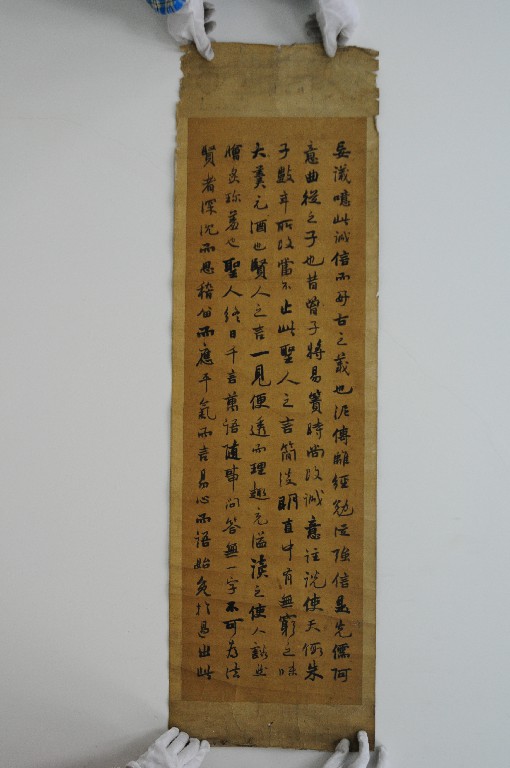 妄議噫此誠信而好古之義也泥傳離經勉從強信是先儒阿
意曲從之子也昔曾子將易簀時尚改誠意註說使天假朱
子數年所改當不止此聖人之言簡淡明直中有無窮之味
大羹元酒也賢人之言一見便透而理趣充溢讀之使人豁然
膾炙珍羞也聖人終日千言萬語隨事問答無一字不可為法
賢者深沉而思稽留而應平氣而言易心而語始免於過出此